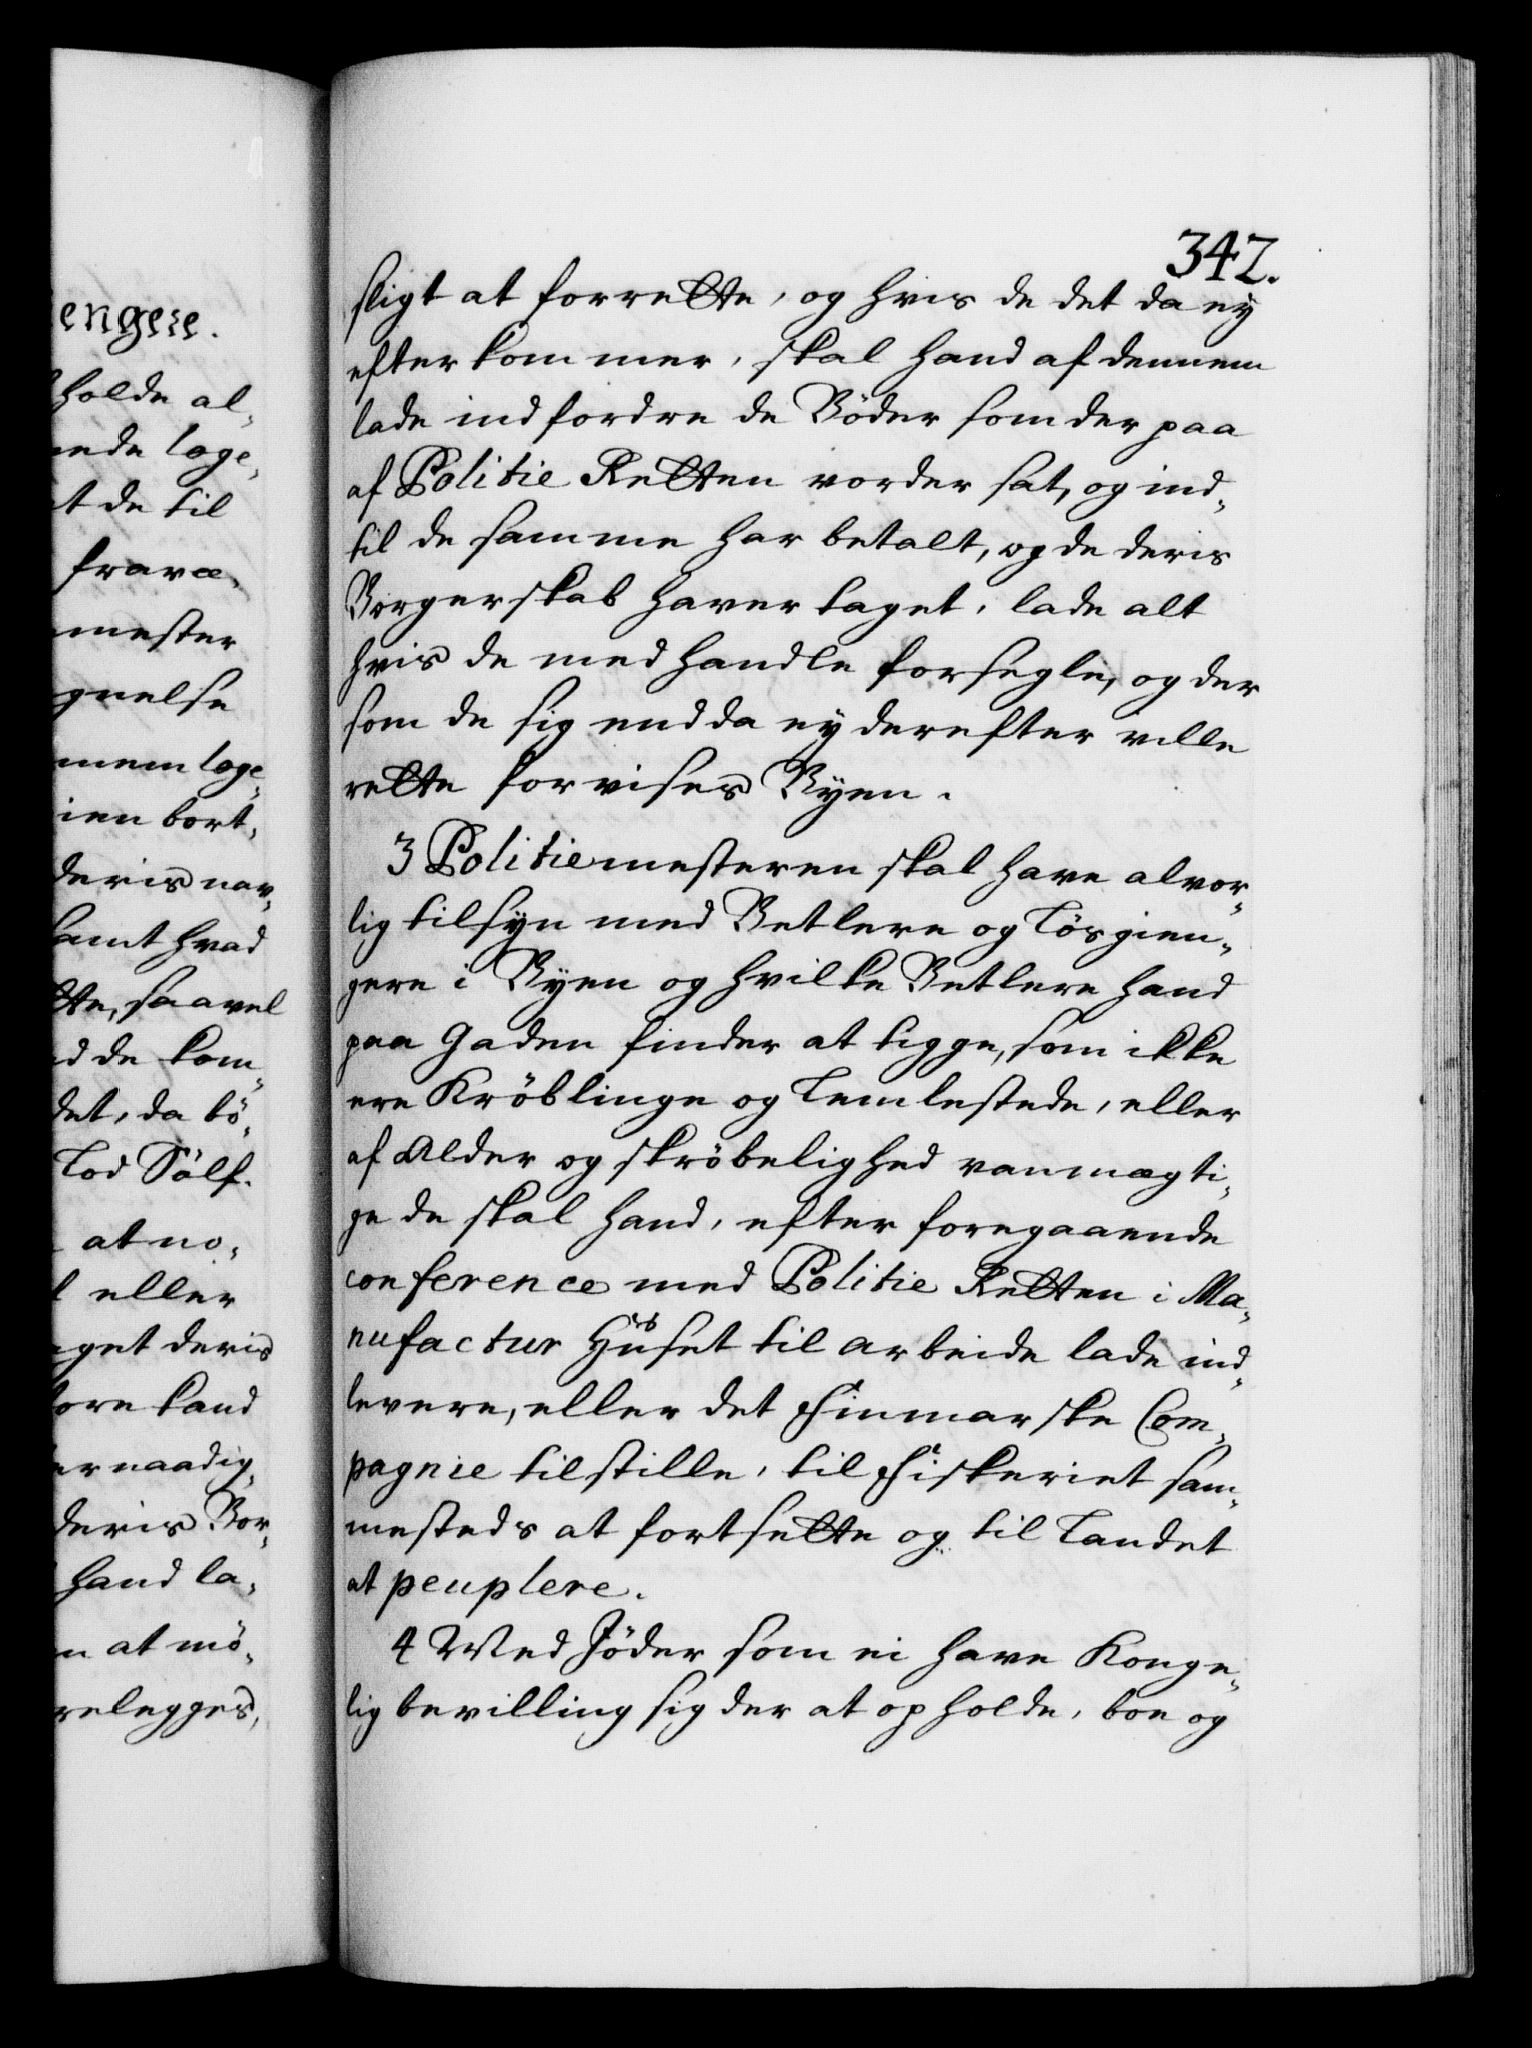 engere.
holde al-
ende loge-
t de til
fravæ-
mester
gnelse
mem loge-
ien bort-
deris nav-
samt hvad
tte, saavel
d de kom-
det, da bö-
Lod Sölf.
at no-
l eller
aget deris
fore kand
er naadig-
deris Bor-
hand la-
n at mö-
relegges,
342.
sligt at forrette, og hvis de det da ey
efterkommer, skal hand af dennem
lade indfordre de Böder som der paa
af Politie Retten vorder sat, og ind-
til de samme har betalt, og de deris
Borgerskab haver taget, lade alt
hvis de med handle forsegle, og der
som de sig endda ey derefter ville
rette forvises Byen.
3 Politiemesteren skal have alvor-
lig tilsyn med Betlere og Lösgien-
gere i Byen og hvilke Betlere hand
paa Gaden finder at tigge, som ikke
ere Kröblinge og Lemlestede, eller
af Alder og skröbelighed vanmægti-
ge de skal hand, efter foregaaende
conference med Politie Retten i Ma-
nufactur Huset til arbeide lade ind-
levere, eller det Finmarske Com-
pagnie tilstille, til Fiskeriet sam-
mesteds at fortsette og til Landet
at peuplere.
4 Med Jöder som ei have Konge-
lig bevilling sig der at opholde, boe og